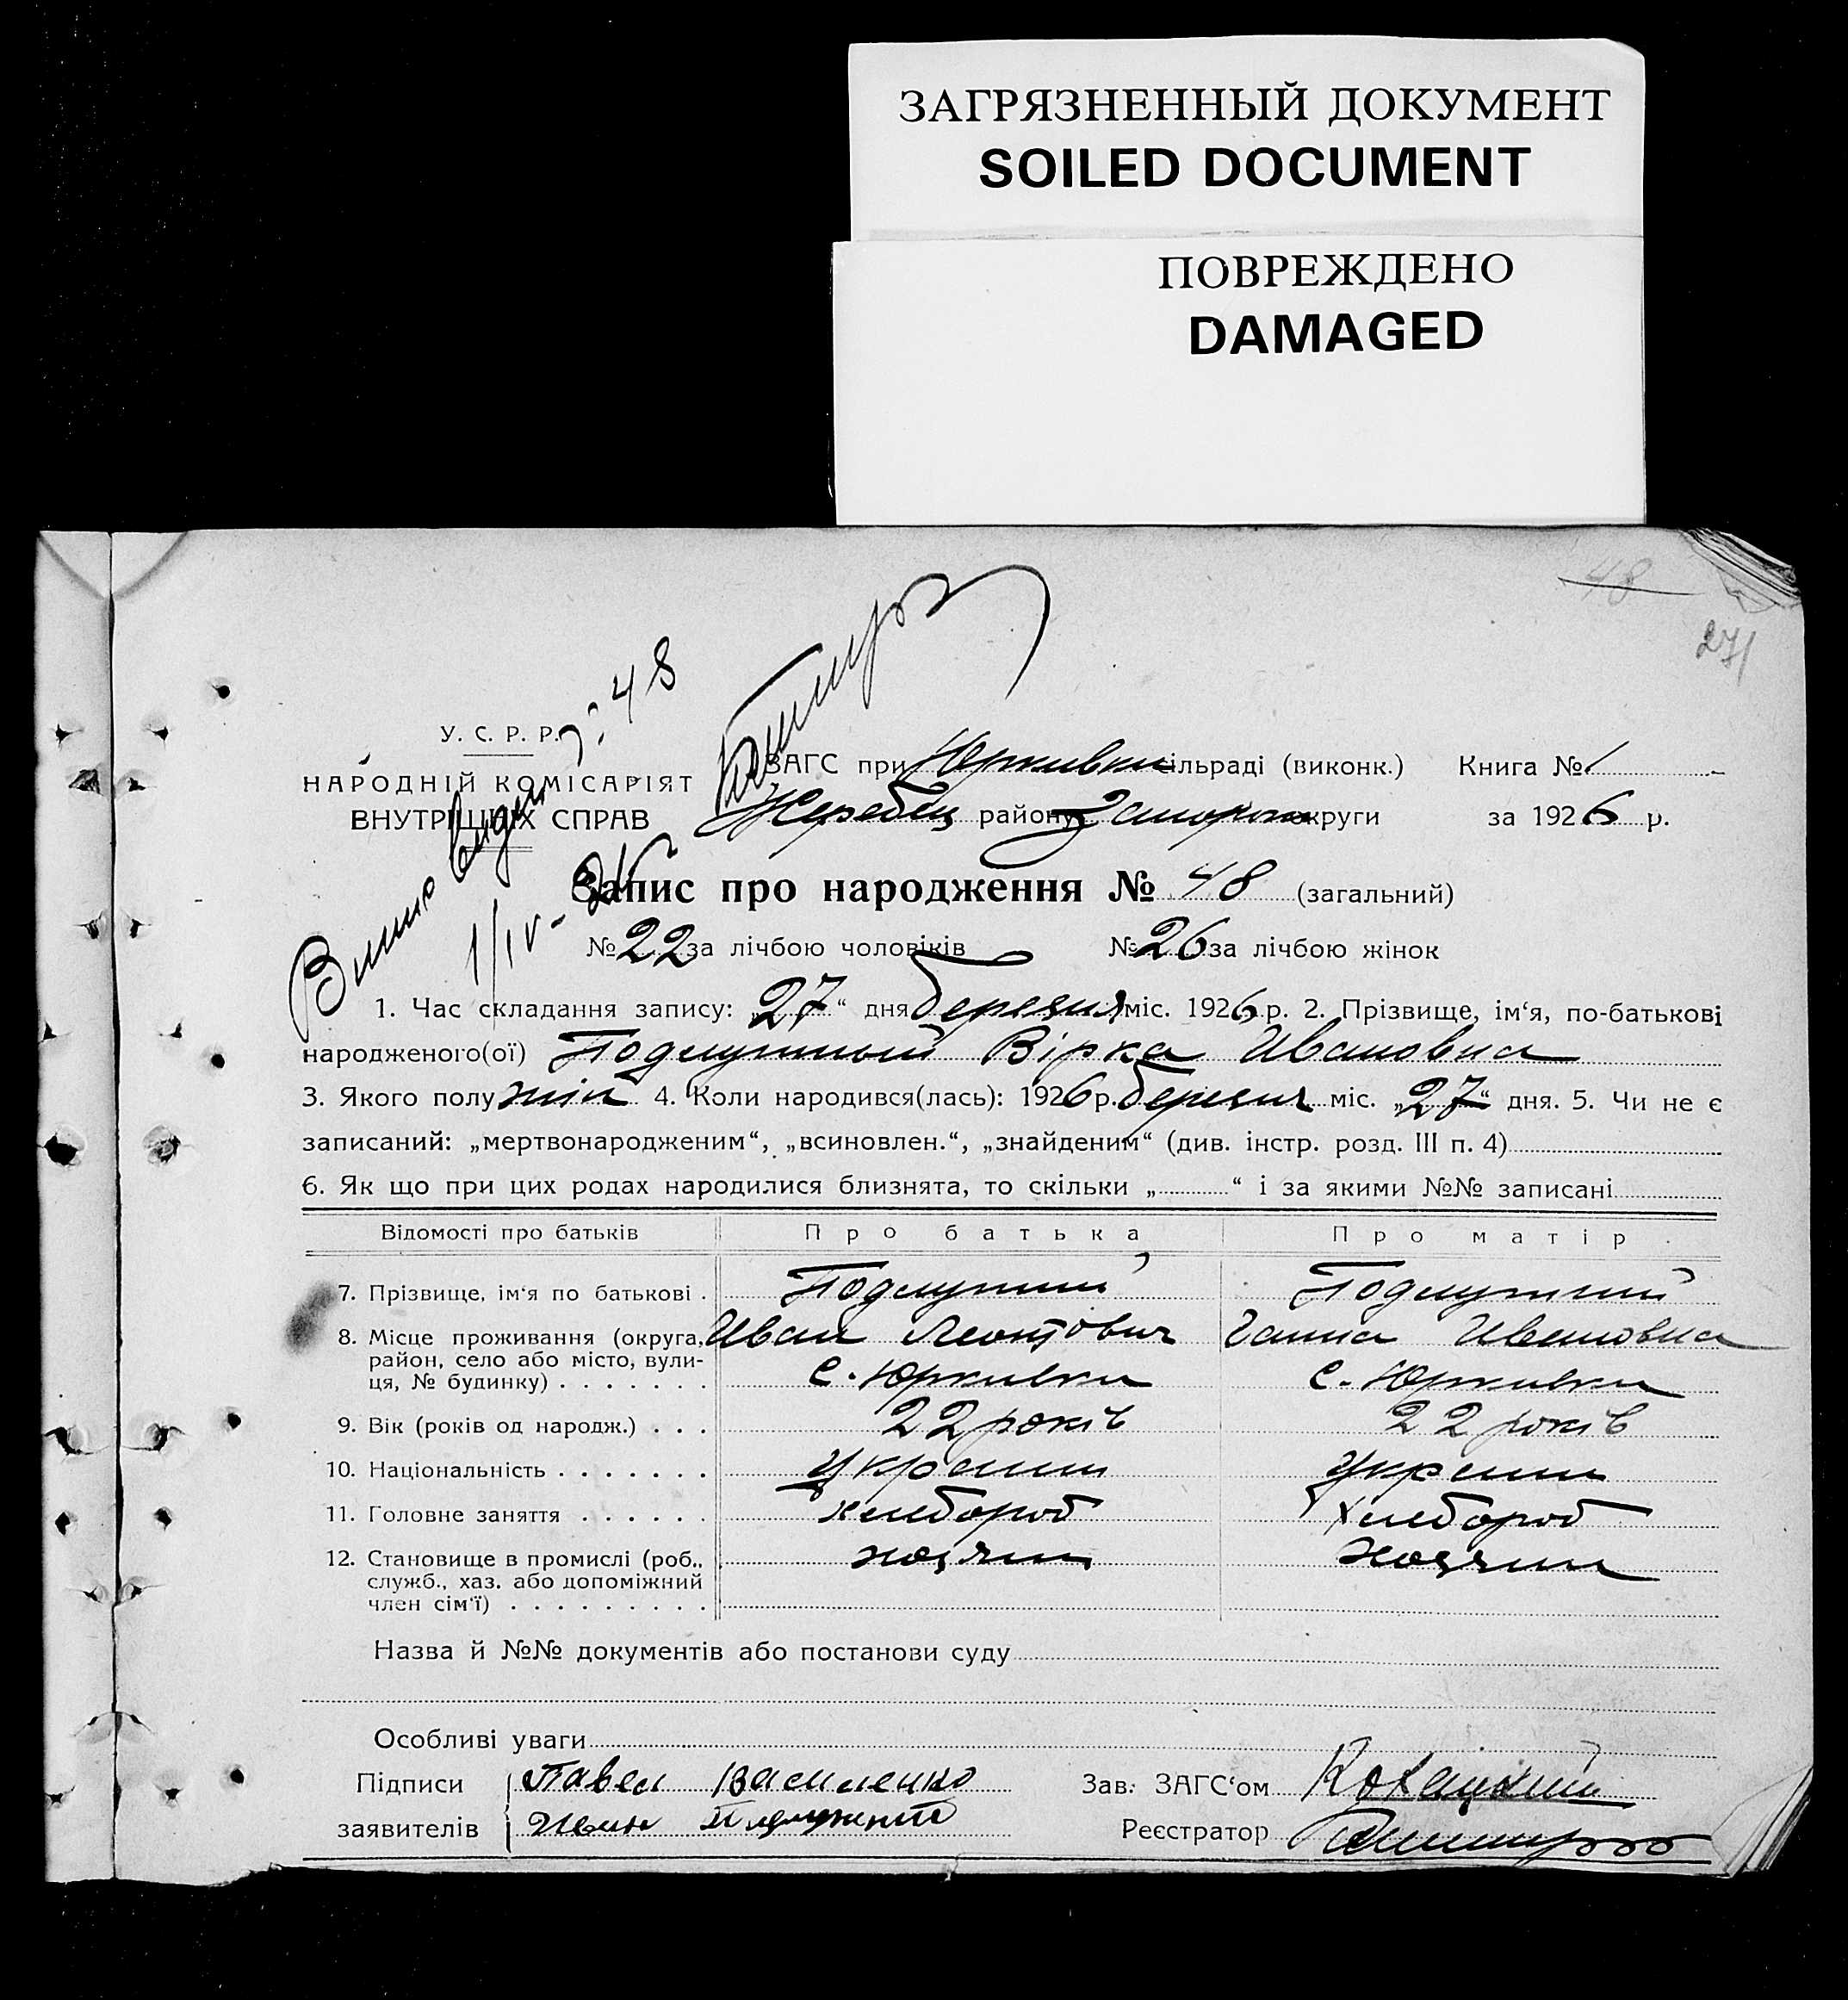 ЗАГРЯЗНЕННЫЙ ДОКУМЕНТ
SOILED DOCUMENT
ПОВРЕЖДЕНО
DAMAGED
48
271
48
У. С. Р. Р.
НАРОДНІЙ КОМІСАРІЯТ
ВНУТРІШНІХ СПРАВ
ЗАГС при Юркивки сільраді (виконк.) Книга № 1
Жеребец району Запорож округи за 1926 р.
Запис про народження № 48 (загальний)
№ 22 за лічбою чоловіків № 26 за лічбою жінок
1. Час складання запису: „27“ дня березня міс. 1926 р. 2. Прізвище, ім‘я, по-батькові
народженого(ої) Подлужный Вірка Ивановна
3. Якого полу жін 4. Коли народився(лась): 1926 р. березня міс. „27“ дня. 5. Чи не є
записаний: „мертвонародженим“, „всиновлен.“, „знайденим“ (див. інстр. розд. III п. 4)
6. Як що при цих родах народилися близнята, то скільки „ “ і за якими №№ записані
Відомості про батьків Про батька Про матір
7. Прізвище, ім‘я по батькові . Подлужний Подлужний
8. Місце проживання (округа, Иван Леонтович Ганна Ивановна
район, село або місто, вули-
ця, № будинку) . . . . . . . с. Юркивки с. Юркивки
9. Вік (років од народж.) . . . 22 років 22 років
10. Національність . . . . . . . Украин Украин
11. Головне заняття . . . . . . хлебороб хлебороб
12. Становище в промислі (роб., хозяин хозяин
служб., хаз. або допоміжний
член сім‘ї) . . . . . . . . .
Назва й №№ документів або постанови суду
Особливі уваги
Підписи Павел Василенко Зав. ЗАГС‘ом
заявителів Иван Подлужний Реєстратор